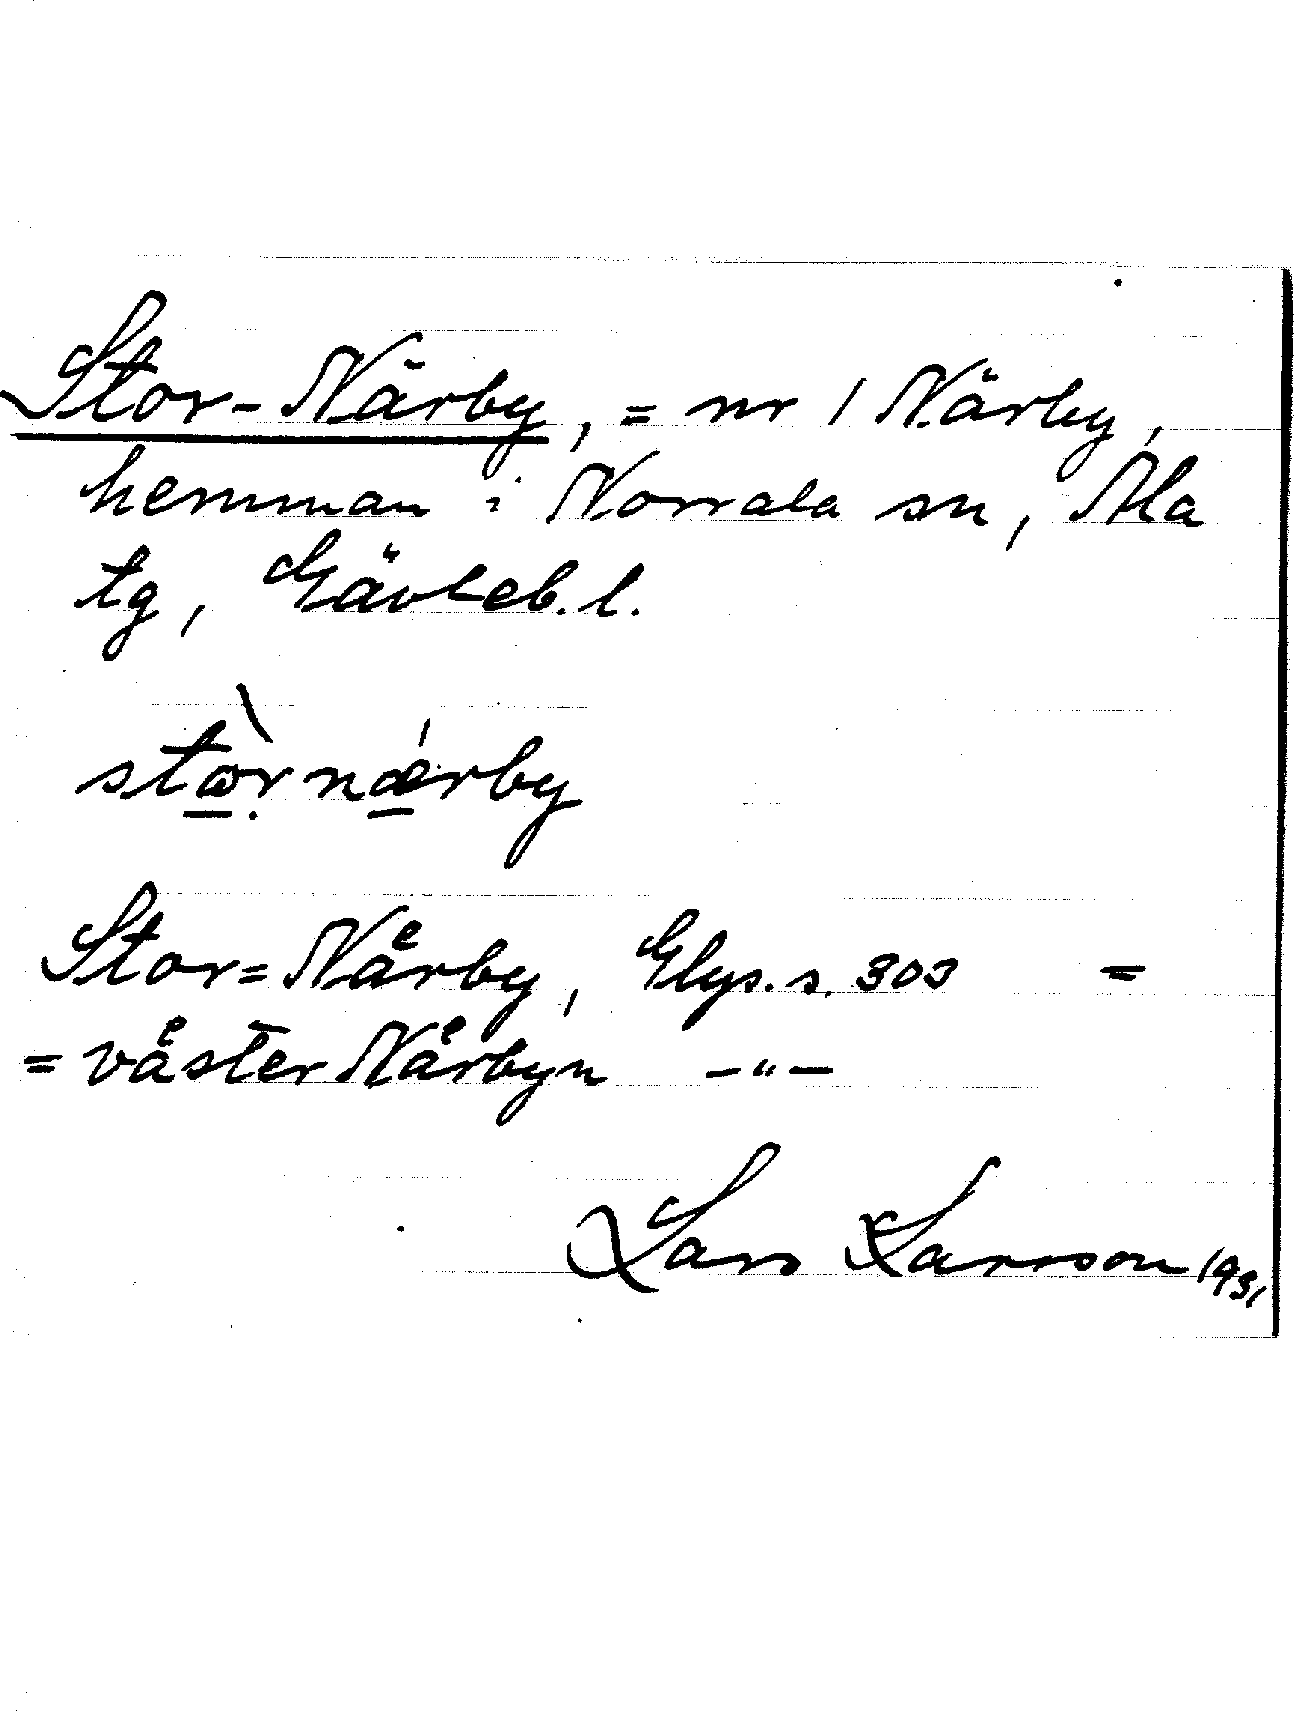 Stor-Närby, = nr 1 Närby,
hemman i Norrala sn, Ala
tg, Gävleb. l.
stòrnǽrby
Stor=Naͤrby, Glys. s. 303 =
= vaͤster Naͤrbyn —"—
Lars Larsson 1931